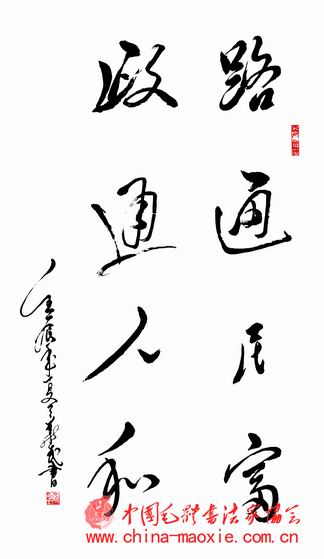 路通民富
政通人和
中国毛体书法家协会
www.china-maoxie.com